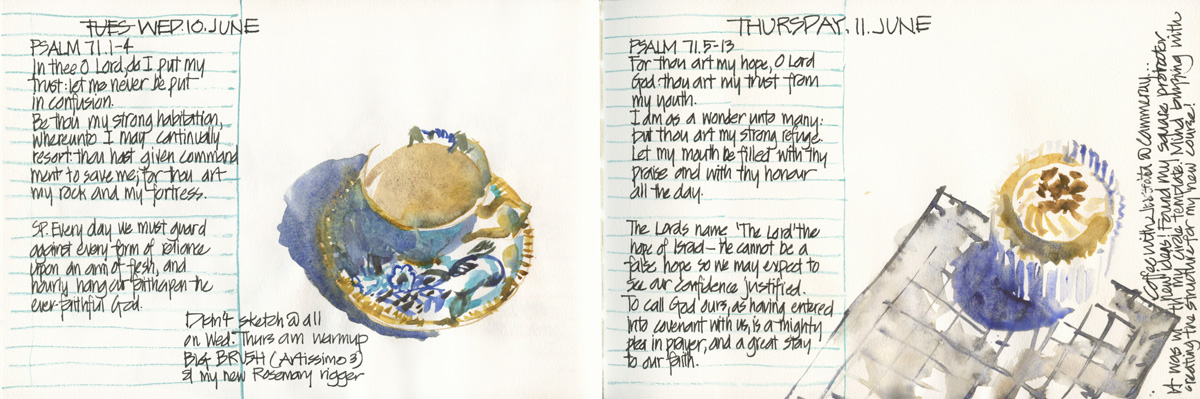 TUES-WED.10.JUNE
PSALM 71.1-4
In thee O Lord, do I put my
trust: let me never be put
in confusion.
Be thou my strong habitation,
whereunto I may continually
resort: thou hast given command
ment to save me; for thou art
my rock and my fortress.
SP. Every day we must guard
against every form of reliance
upon an arm of flesh, and
hourly hang our faith upon the
ever-faithful God.
Didn't sketch @ all
on Wed. Thurs am warmup
BIG BRUSH (Artissimo 3)
& my new Rosemary rigger
THURSDAY, 11. JUNE
PSALM 71.5-13
For thou art my hope, O Lord
God: thou art my trust from
my youth.
I am as a wonder unto many:
but thou art my strong refuge.
Let my mouth be filled with thy
praise and with thy honour
all the day.
The Lords name 'The Lord' the
hope of Israel - He cannot be a
false hope so we may expect to
see our confidence justified.
To call God ours, as having entered
into covenant with us, is a mighty
plea in prayer, and a great stay
to our faith.
Coffee with @ Commeray...
It was with new ideas. Found my square protractor
my circle template and bursting with
creating the structure for my new course!